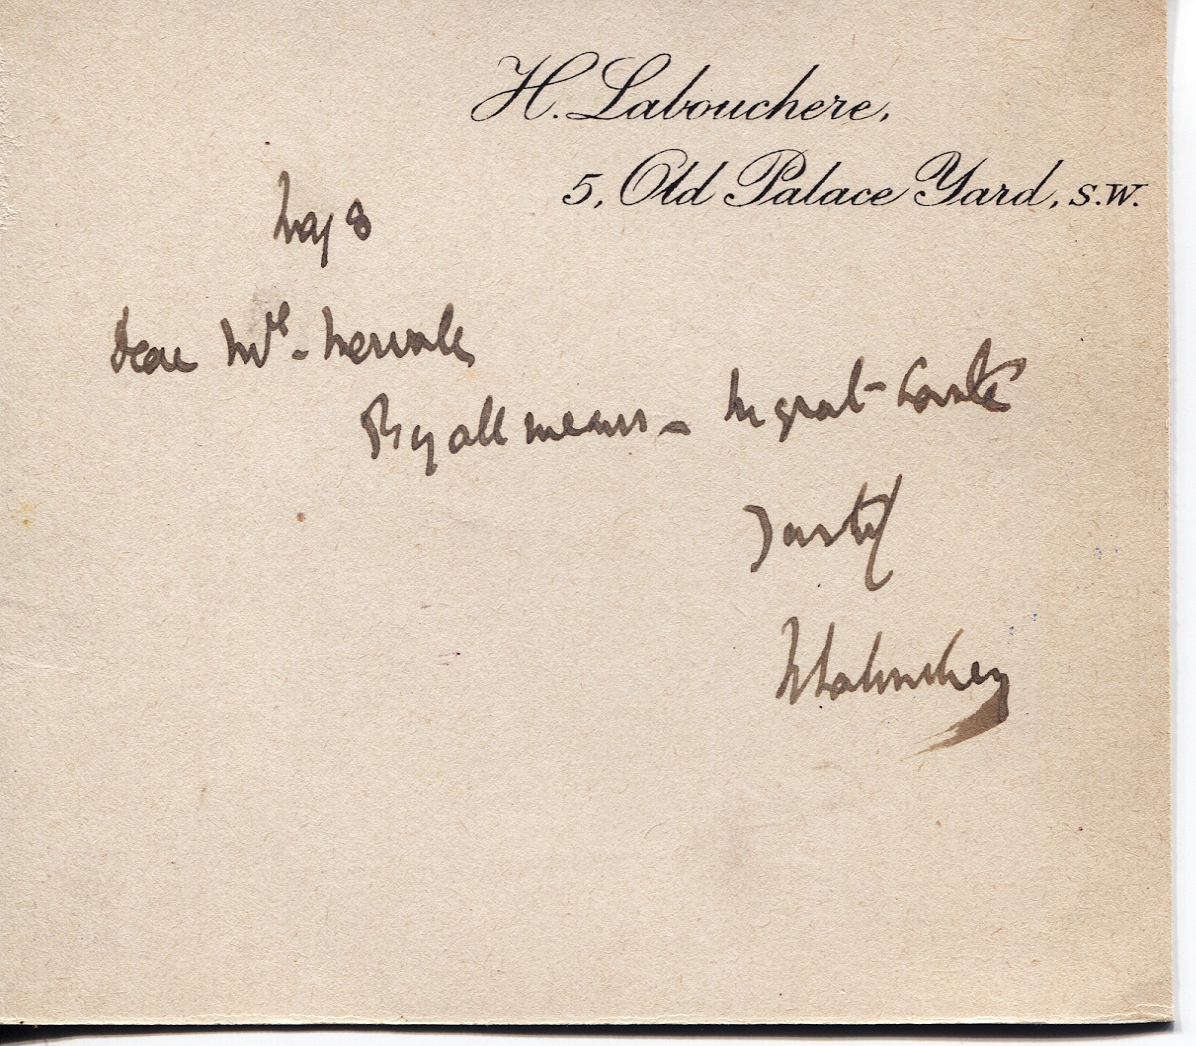 H. Labouchere,
5, Old Palace Yard, S.W.
May 8
Dear Mr. Merivale
By all means – in great haste
H Labouchere